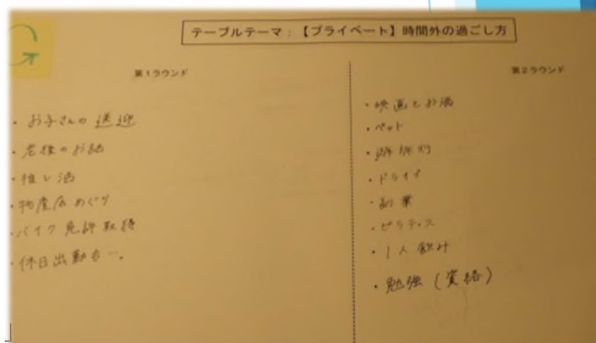 G
テーブルテーマ：【プライベート】時間外の過ごし方
第1ラウンド
・お子さんの送迎
・老後のお話
・推し活
・物産店めぐり
・バイク免許取得
・休日出勤も…。
第2ラウンド
・映画とお酒
・ペット
・海外旅行
・ドライブ
・副業
・ピラティス
・1人飲み
・勉強(資格)